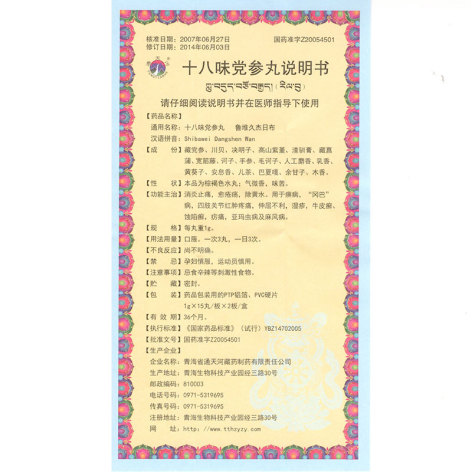 核准日期：2007年06月27日
修订日期：2014年06月03日
国药准字Z20054501
十八味党参丸说明书
请仔细阅读说明书并在医师指导下使用
【药品名称】
通用名称：十八味党参丸 鲁堆久杰日布
汉语拼音：Shibawei Dangshen Wan
【成 份】藏党参、川贝、决明子、高山紫堇、渣驯膏、藏菖
蒲、宽筋藤、诃子、手参、毛诃子、人工麝香、乳香、
黄葵子、安息香、儿茶、巴夏嘎、余甘子、木香。
【性 状】本品为棕褐色水丸；气微香，味苦。
【功能主治】消炎止痛，愈疮疡，除黄水。用于痹病，“冈巴”
病，四肢关节红肿疼痛，伸屈不利，湿疹，牛皮癣，
蚀陷癣，疠痛，亚玛虫病及麻风病。
【规 格】每丸重1g。
【用法用量】口服。一次3丸，一日3次。
【不良反应】尚不明确。
【禁 忌】孕妇慎服，运动员慎用。
【注意事项】忌食辛辣等刺激性食物。
【贮 藏】密封。
【包 装】药品包装用的PTP铝箔，PVC硬片
1g×15丸/板×2板/盒
【有 效 期】36个月。
【执行标准】《国家药品标准》（试行）YBZ14702005
【批准文号】国药准字Z20054501
【生产企业】
企业名称：青海省通天河藏药制药有限责任公司
生产地址：青海生物科技产业园经三路30号
邮政编码：810003
电话号码：0971-5319695
传真号码：0971-5319695
注册地址：青海生物科技产业园经三路30号
网 址：http://www.tthzyzy.com